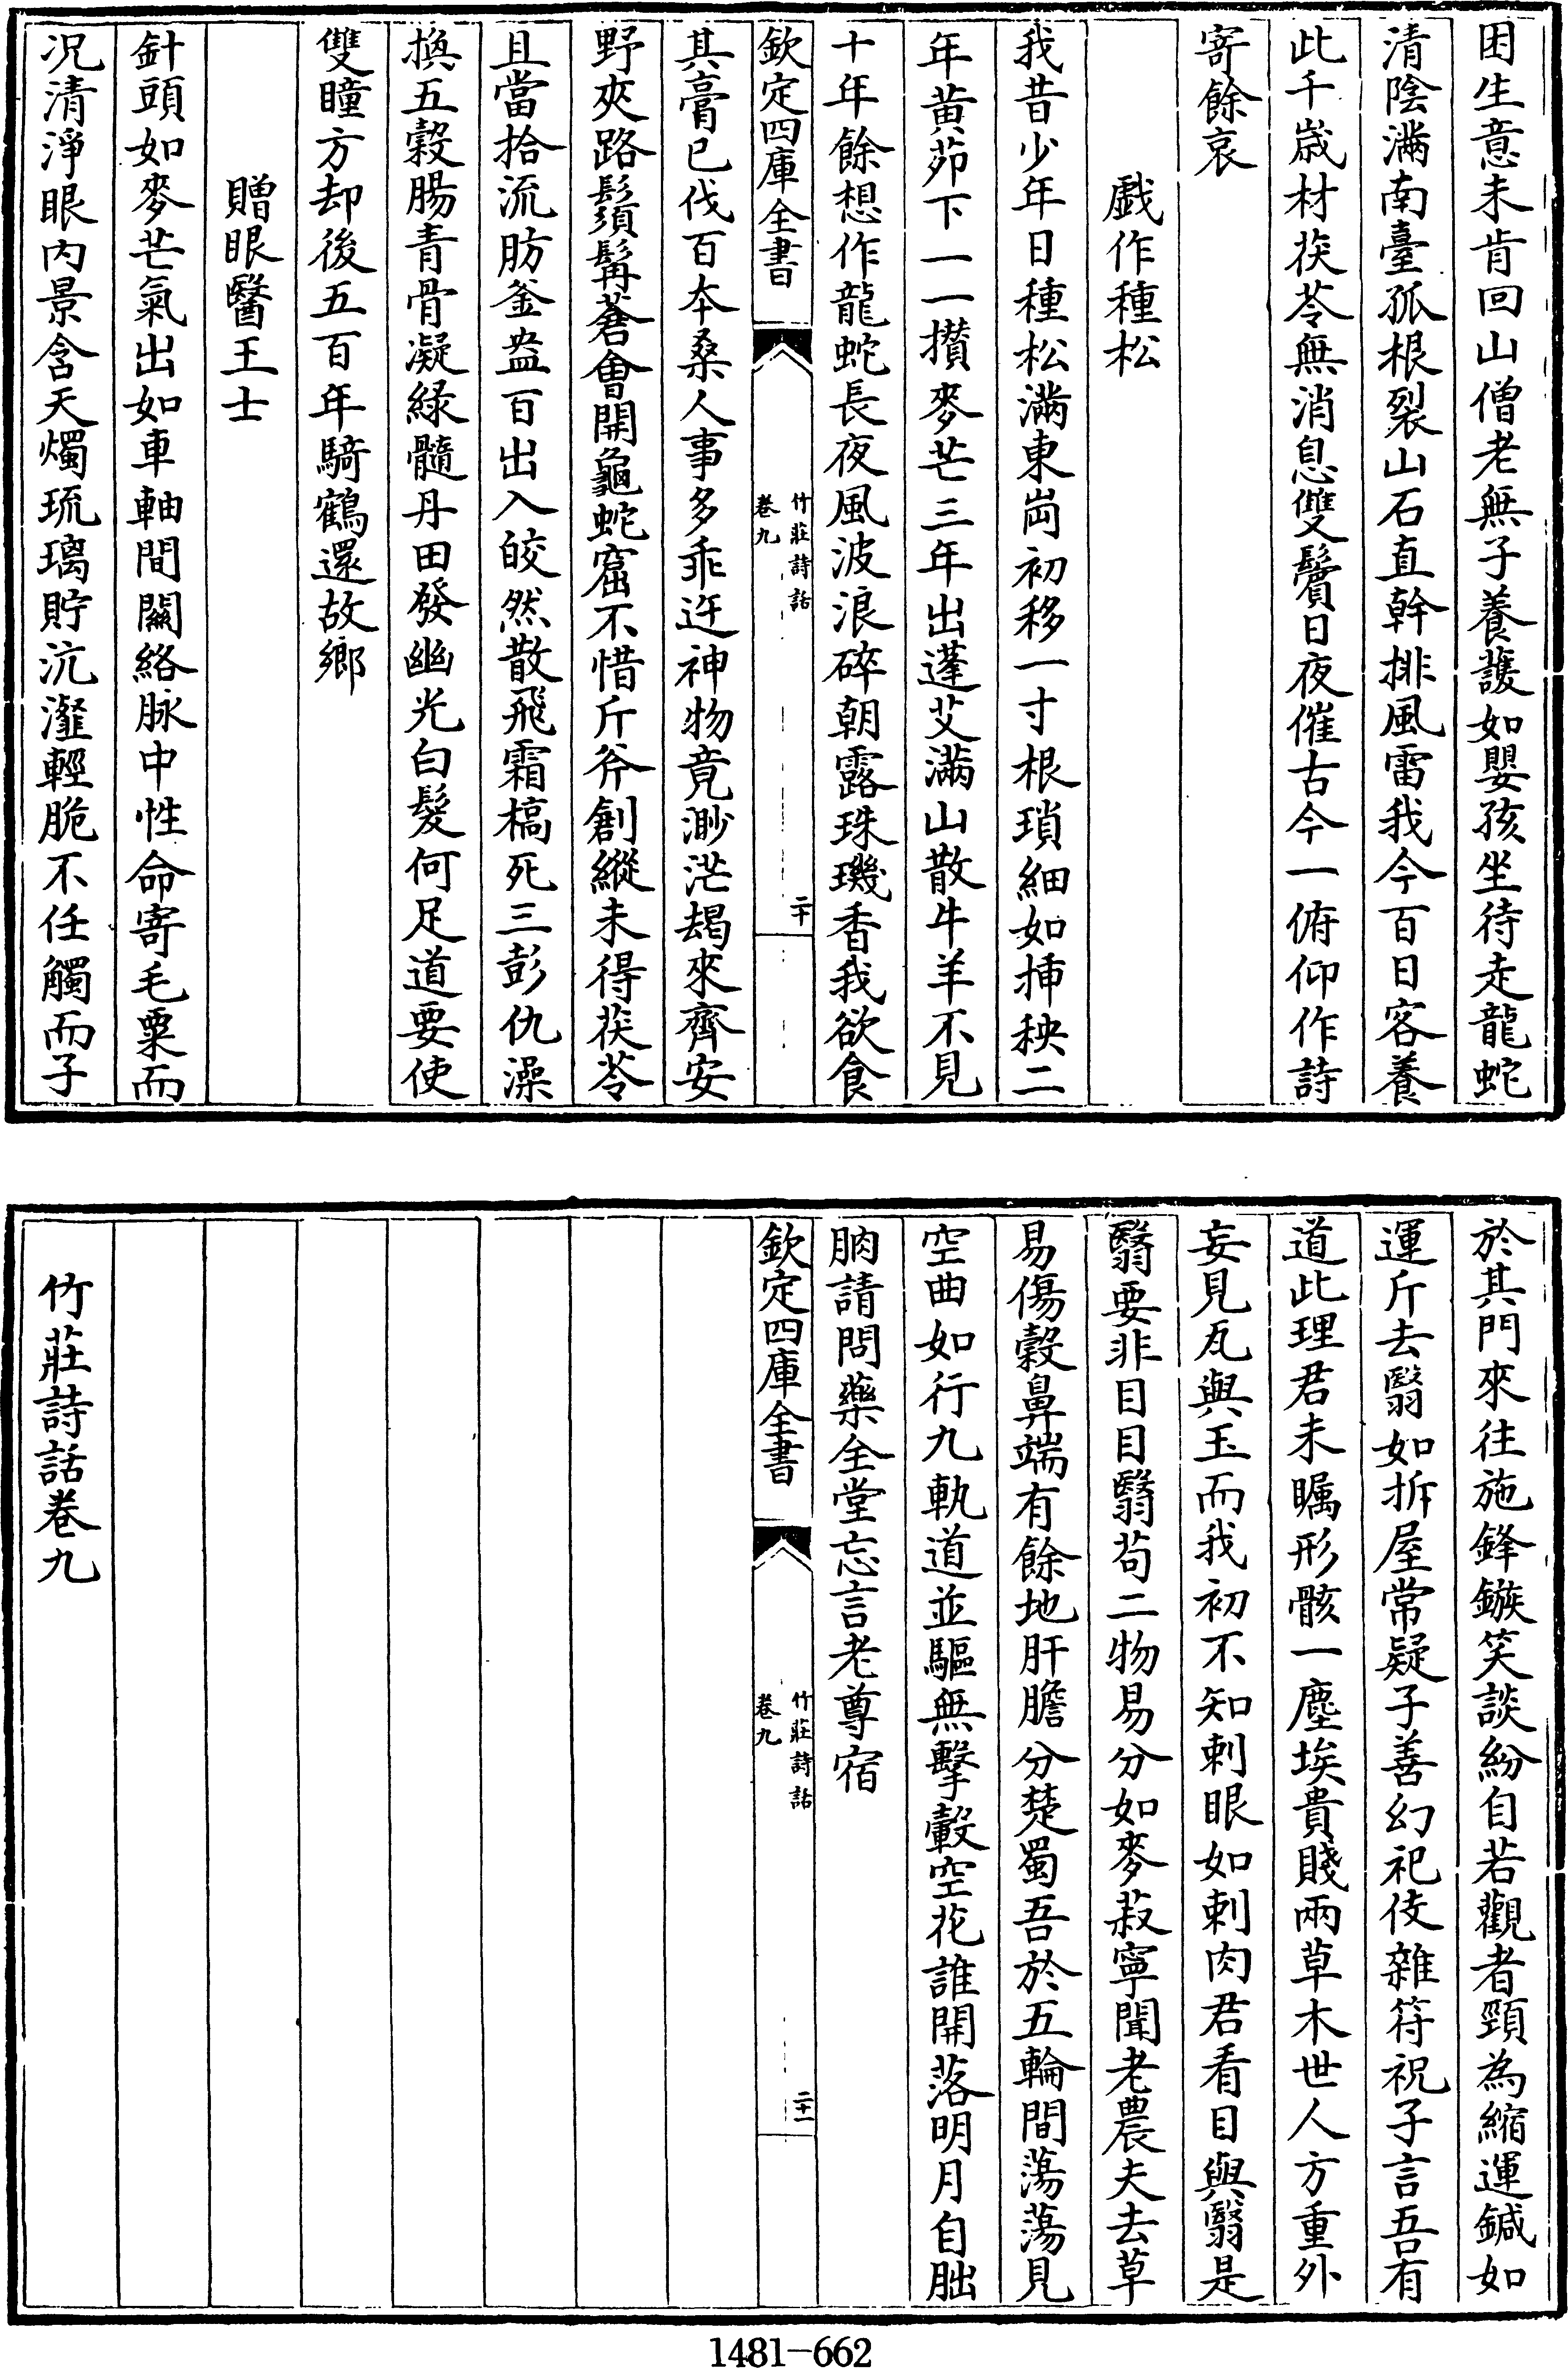 困生意未肯回山僧老無子養護如嬰孩坐待走龍蛇
清陰滿南臺孤根裂山石直幹排風雷我今百日客養
此千歲材茯苓無消息雙鬢日夜催古今一俯仰作詩
寄餘哀
戲作種松
我昔少年日種松滿東岡初移一寸根瑣細如揷秧二
年黃茆下一一攅麥芒三年出蓬艾滿山散牛羊不見
十年餘想作龍蛇長夜風波浪碎朝露珠璣香我欲食
欽定四庫全書
竹莊詩話
卷九
二十
其膏已伐百本桑人事多乖迕神物竟渺茫朅來齊安
野夾路鬚髯蒼會開龜蛇窟不惜斤斧創縱未得茯苓
且當拾流肪釜盎百出入皎然散飛霜槁死三彭仇澡
換五穀腸青骨凝綠髓丹田發幽光白髮何足道要使
雙瞳方却後五百年騎鶴還故鄉
贈眼醫王士
針頭如麥芒氣出如車軸間關絡脉中性命寄毛粟而
况清淨眼內景含天燭琉璃貯沆瀣輕脆不任觸而子
於其門來往施鋒鏃笑談紛自若觀者頸為縮運鍼如
運斤去翳如拆屋常疑子善幻祀伎雜符祝子言吾有
道此理君未矚形骸一塵埃貴賤兩草木世人方重外
妄見瓦與玉而我初不知刺眼如刺肉君看目與翳是
翳要非目目翳苟二物易分如麥菽寧聞老農夫去草
易傷穀鼻端有餘地肝膽分楚蜀吾於五輪間蕩蕩見
空曲如行九軌道並驅無擊轂空花誰開落明月自朏
朒請問藥全堂忘言老尊宿
欽定四庫全書
竹莊詩話
卷九
二十一
竹莊詩話卷九
1481-662